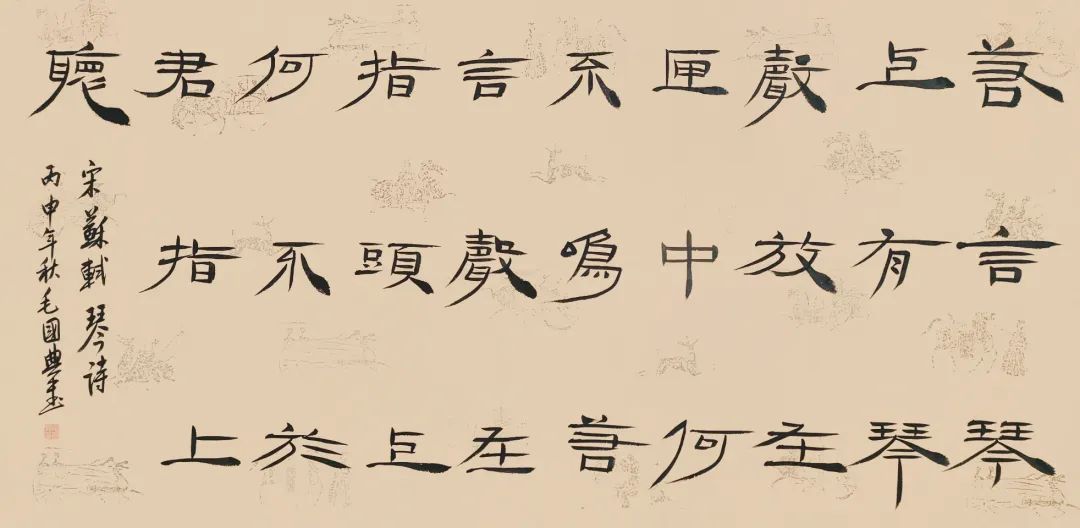 若言琴
上有琴
聲放在
匣中何
不鳴若
言聲在
指頭上
何不於
君指上
聽
宋蘇軾琴詩
丙申年秋毛國典書